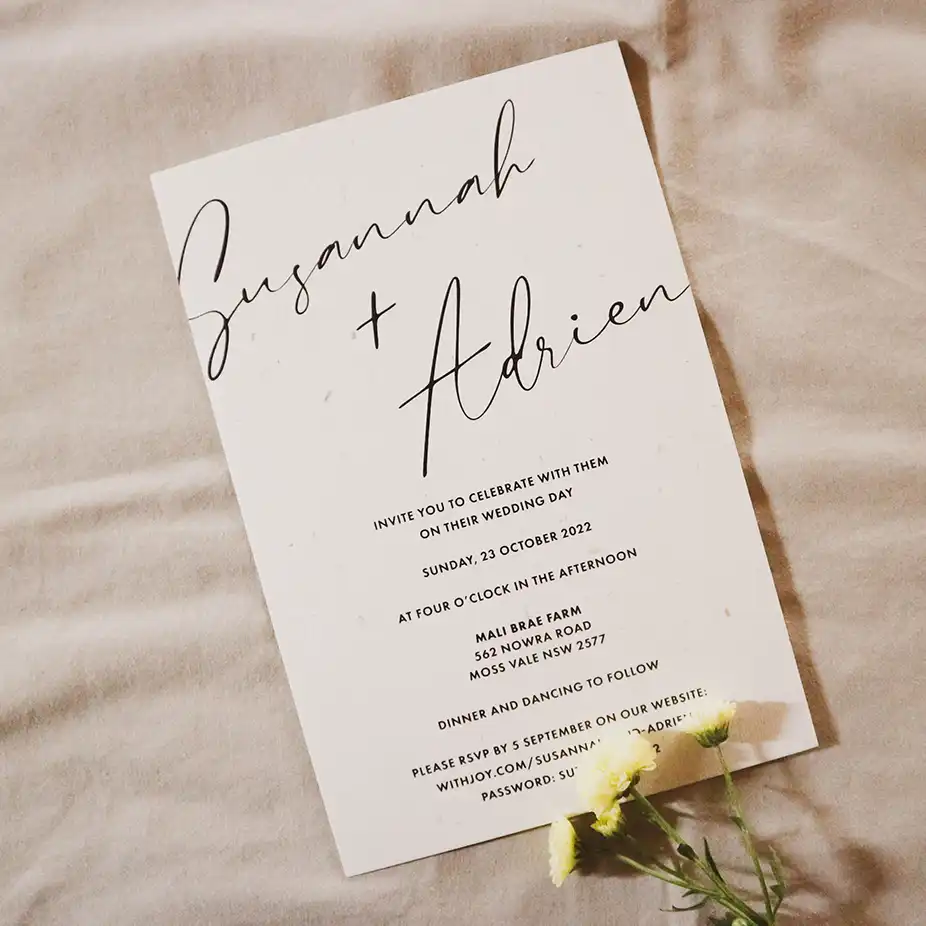 Susannah
+
Adrien
INVITE YOU TO CELEBRATE WITH THEM
ON THEIR WEDDING DAY
SUNDAY, 23 OCTOBER 2022
AT FOUR O'CLOCK IN THE AFTERNOON
MALI BRAE FARM
562 NOWRA ROAD
MOSS VALE NSW 2577
DINNER AND DANCING TO FOLLOW
PLEASE RSVP BY 5 SEPTEMBER ON OUR WEBSITE:
PASSWORD: